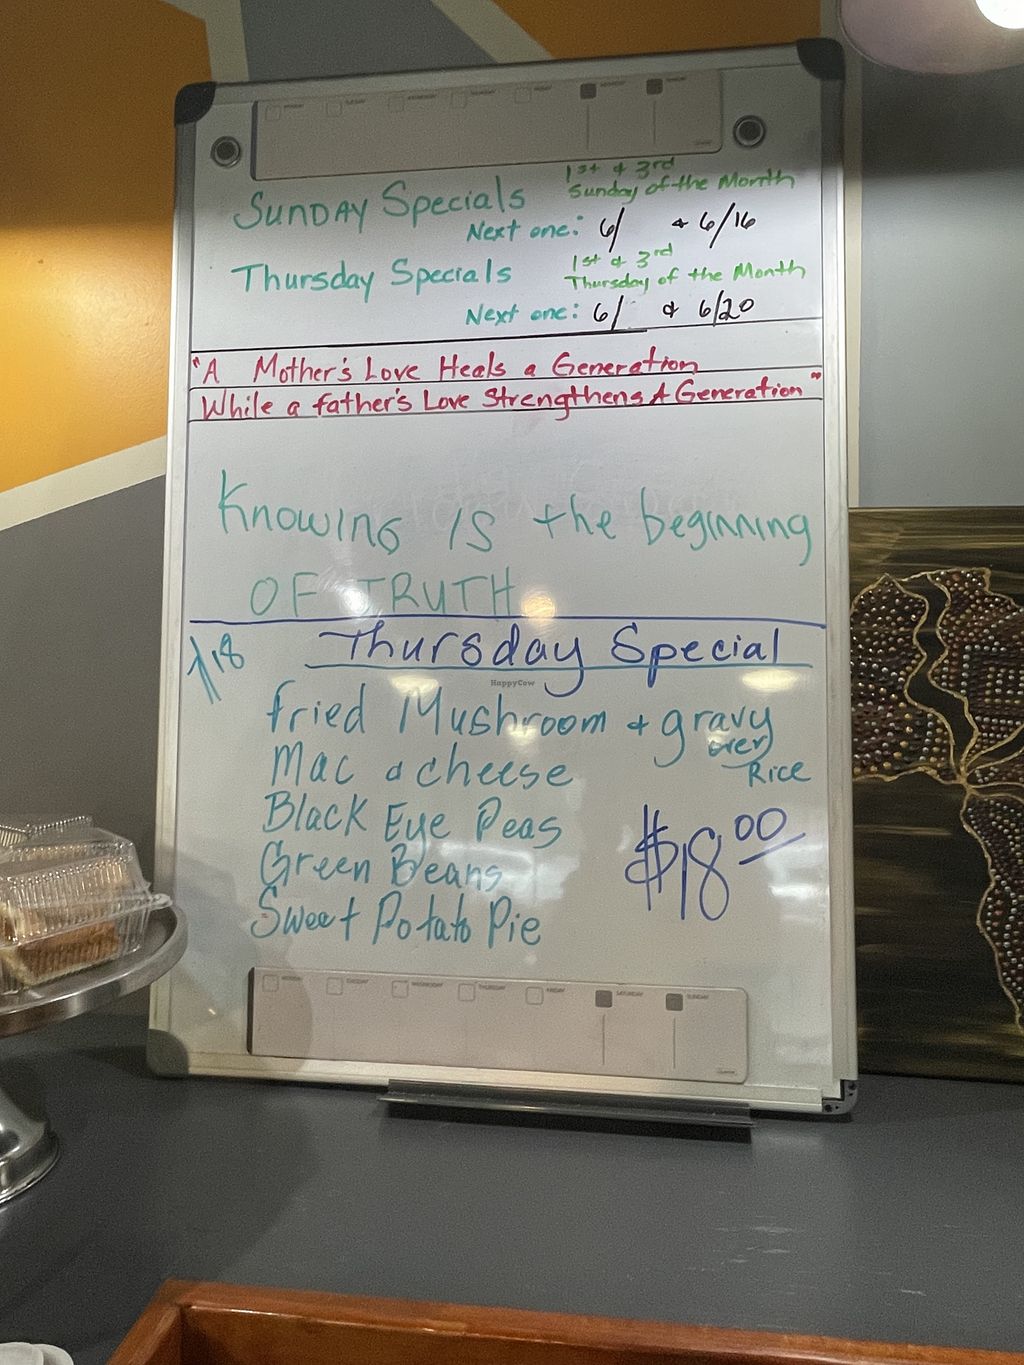 Sunday Specials 1st & 3rd Sunday of the Month
Next one: 6/ & 6/16
Thursday Specials 1st & 3rd Thursday of the Month
Next one: 6/ & 6/20
"A Mother's Love Heals a Generation
While a father's Love Strengthens A Generation"
Knowing is the beginning
OF TRUTH
Thursday Special
fried Mushroom & gravy over Rice
Mac & cheese
Black Eye Peas
Green Beans
Sweet Potato Pie
$18.00
HappyCow
MONDAY TUESDAY WEDNESDAY THURSDAY FRIDAY SATURDAY SUNDAY